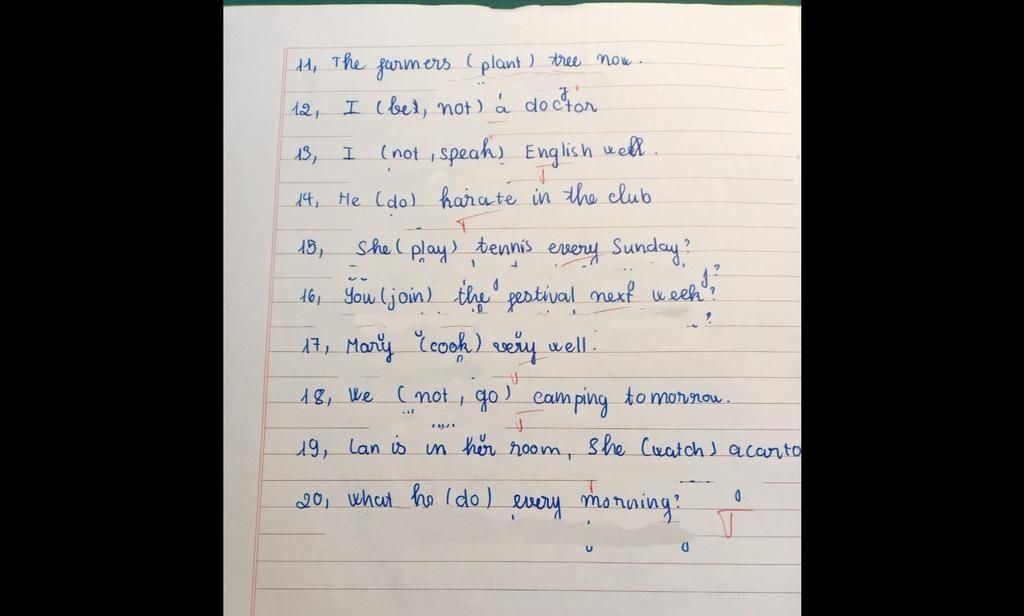 11, The farmers (plant) tree now.
12, I (be, not) a doctor
13, I (not, speak) English well.
14, He (do) karate in the club
15, She (play) tennis every Sunday?
16, You (join) the festival next week?
17, Mary (cook) very well.
18, We (not, go) camping tomorrow.
19, Lan is in her room, She (watch) a carto
20, What he (do) every morning?